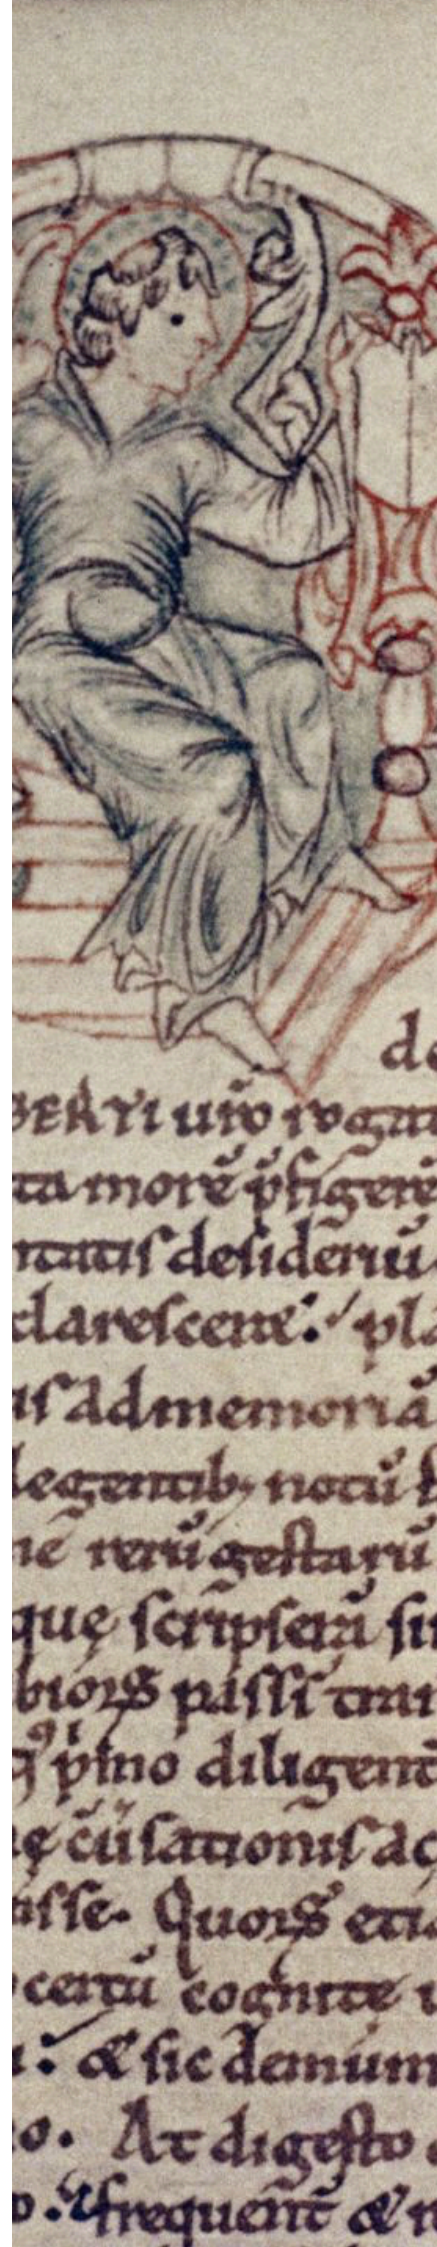 de
BERTI uiro rogat
ta morē p̄figerē
ntatis desideriū
clarescere: pla
us ad memoriā
legentib; notū
nē rerū gestarū
que scripserā sin
biorꝝ passi trai
p̄mo diligent
ę cū sationis ac
isse. Quorꝝ etia
certū cognitę u
: & sic demum
o. At digesto
o. frequent̄ & n